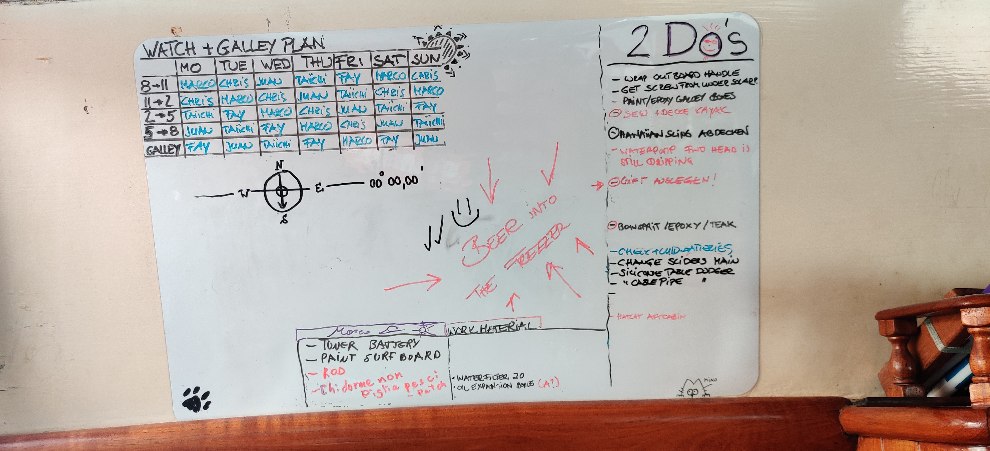 WATCH + GALLEY PLAN
MO TUE WED THU FRI SAT SUN
8→11 MARCO CHRIS JUAN TAICHI FAY MARCO CHRIS
11→2 CHRIS MARCO CHRIS JUAN TAICHI CHRIS MARCO
2→5 TAICHI FAY MARCO CHRIS JUAN TAICHI FAY
5→8 JUAN TAICHI FAY MARCO CHRIS JUAN TAICHI
GALLEY FAY JUAN TAICHI FAY MARCO FAY JUAN
N
W E 00°00,00'
S
BEER INTO
THE FREEZER
Marco
WORK MATERIAL
- TONER BATTERY
- PAINT SURFBOARD
- ROD
- Chi dorme non
piglia pesci
- Patch
- WATERFILTER 20
- OIL EXPANTION (A?)
2 DO'S
- WRAP OUTBOARD HANDLE
- GET SCREW FROM UNDER SOLARP
- PAINT/EPOXY GALLEY BOXES
- SEW + DECKE KAYAK
- HAWAIIAN SLING ABDECKEN
- WATERPUMP FWD HEAD IS
STILL DRIPPING
→ - GIFT AUSLEGEN!
- BOWSPRIT / EPOXY / TEAK
- CHECK + CHLD BATTERIES,
- CHANGE SLIDERS MAIN
- SILICONE TABLE DODGER
- " CABLE PIPE "
- HATCH AFTCABIN